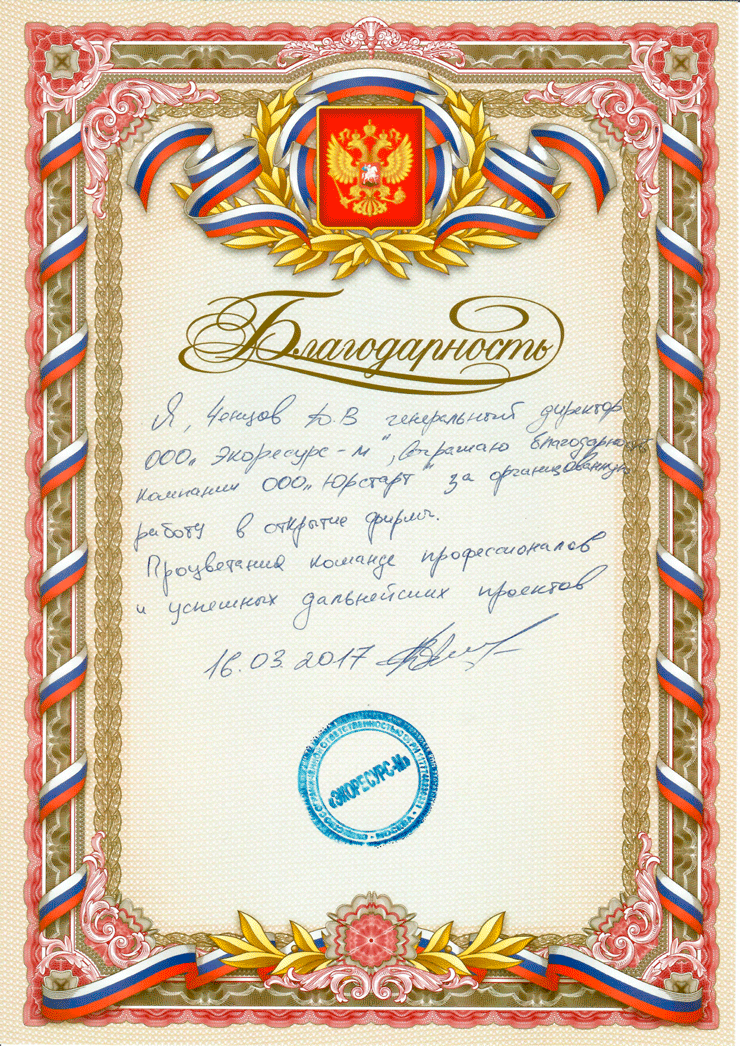 Благодарность
Я, Ченцов Д.В генеральный директор
ООО „Экоресурс-М", выражаю благодарность
компании ООО „Юрстарт" за организованную
работу в открытие фирмы.
Процветания команде профессионалов
и успешных дальнейших проектов
16.03.2017
«ЭКОРЕСУРС-М»
ОТВЕТСТВЕННОСТЬЮ
МОСКВА